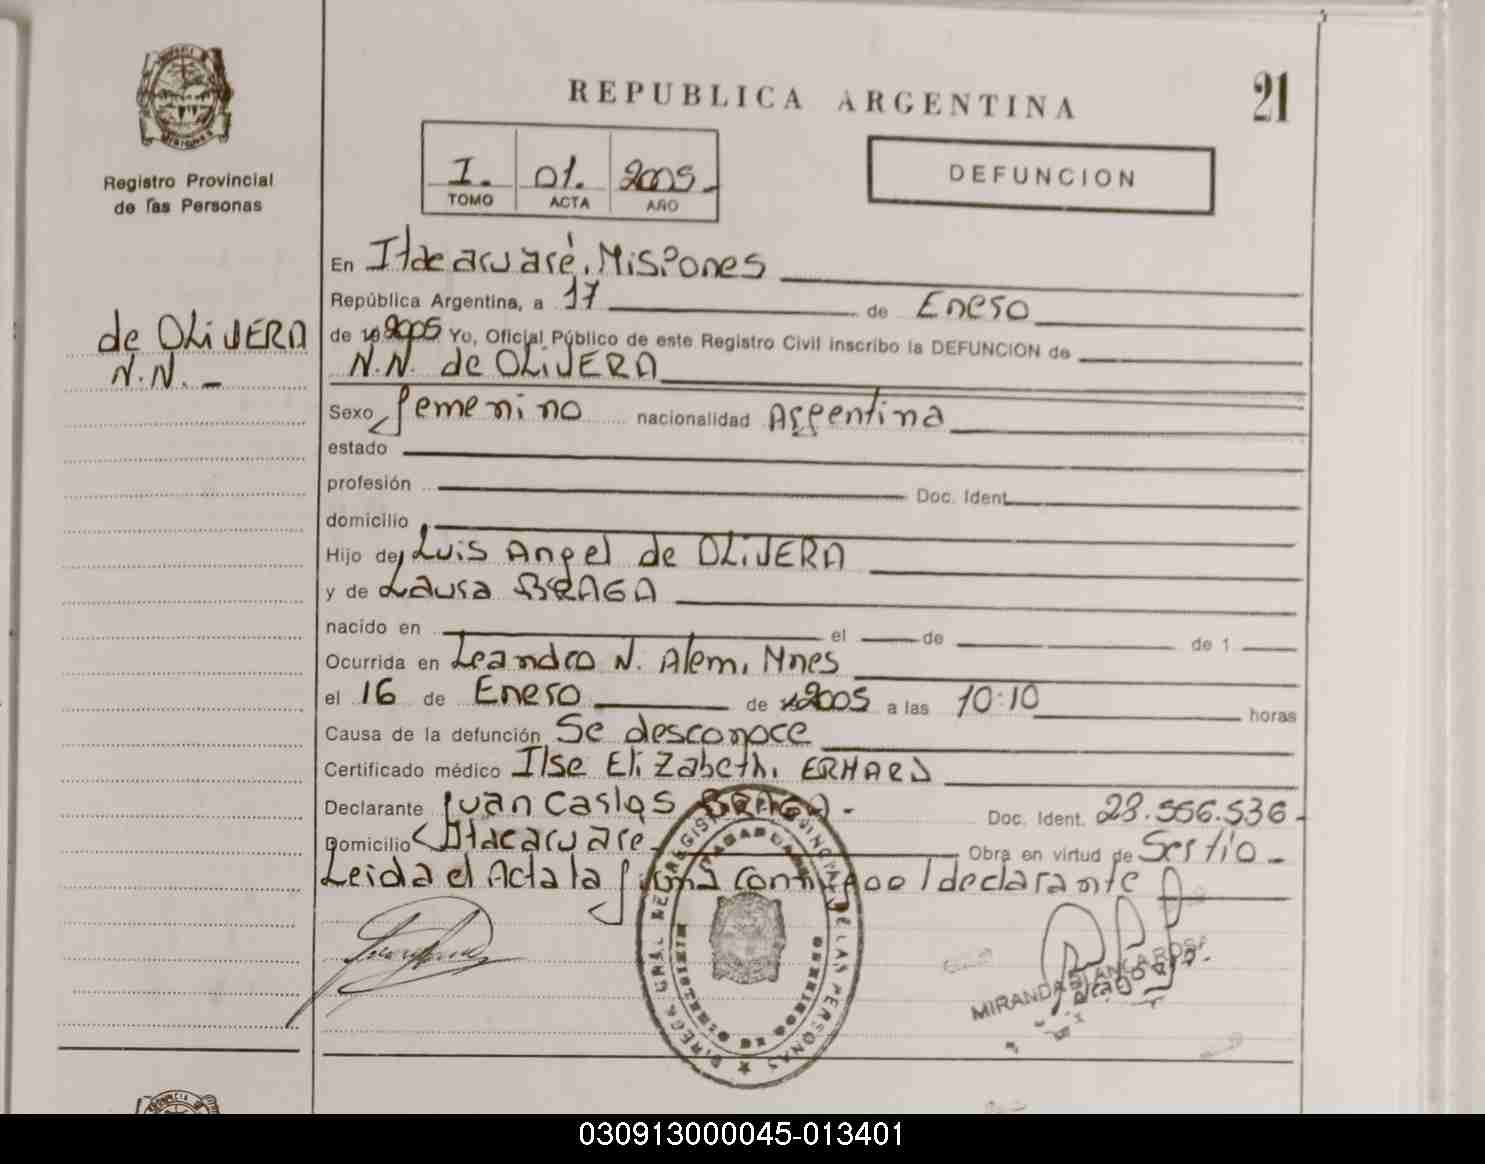 REPUBLICA ARGENTINA
21
Registro Provincial
de las Personas
I. 01. 2005.
TOMO ACTA AÑO
DEFUNCION
En Itacaruaré, Misiones
República Argentina, a 17 de Enero
de OLiVERA
N.N.
de 19 2005 Yo, Oficial Público de este Registro Civil inscribo la DEFUNCION de
N.N. de OLiVERA
Sexo femenino nacionalidad Argentina
estado
profesión Doc. Ident.
domicilio
Hijo de Luis Angel de OLiVERA
y de Laura BRAGA
nacido en el de de 1
Ocurrida en Leandro N. Alem, Mnes
el 16 de Enero de 2005 a las 10:10 horas
Causa de la defunción Se desconoce
Certificado médico Ilse Elizabeth, ERHARD
Declarante Juan Carlos BRAGA.
Doc. Ident. 28.556.536
Domicilio Itacaruaré
Obra en virtud de Sertio
Leida el Acta la firma conmigo el declarante
MIRANDA BLANCA ROSA
030913000045-013401